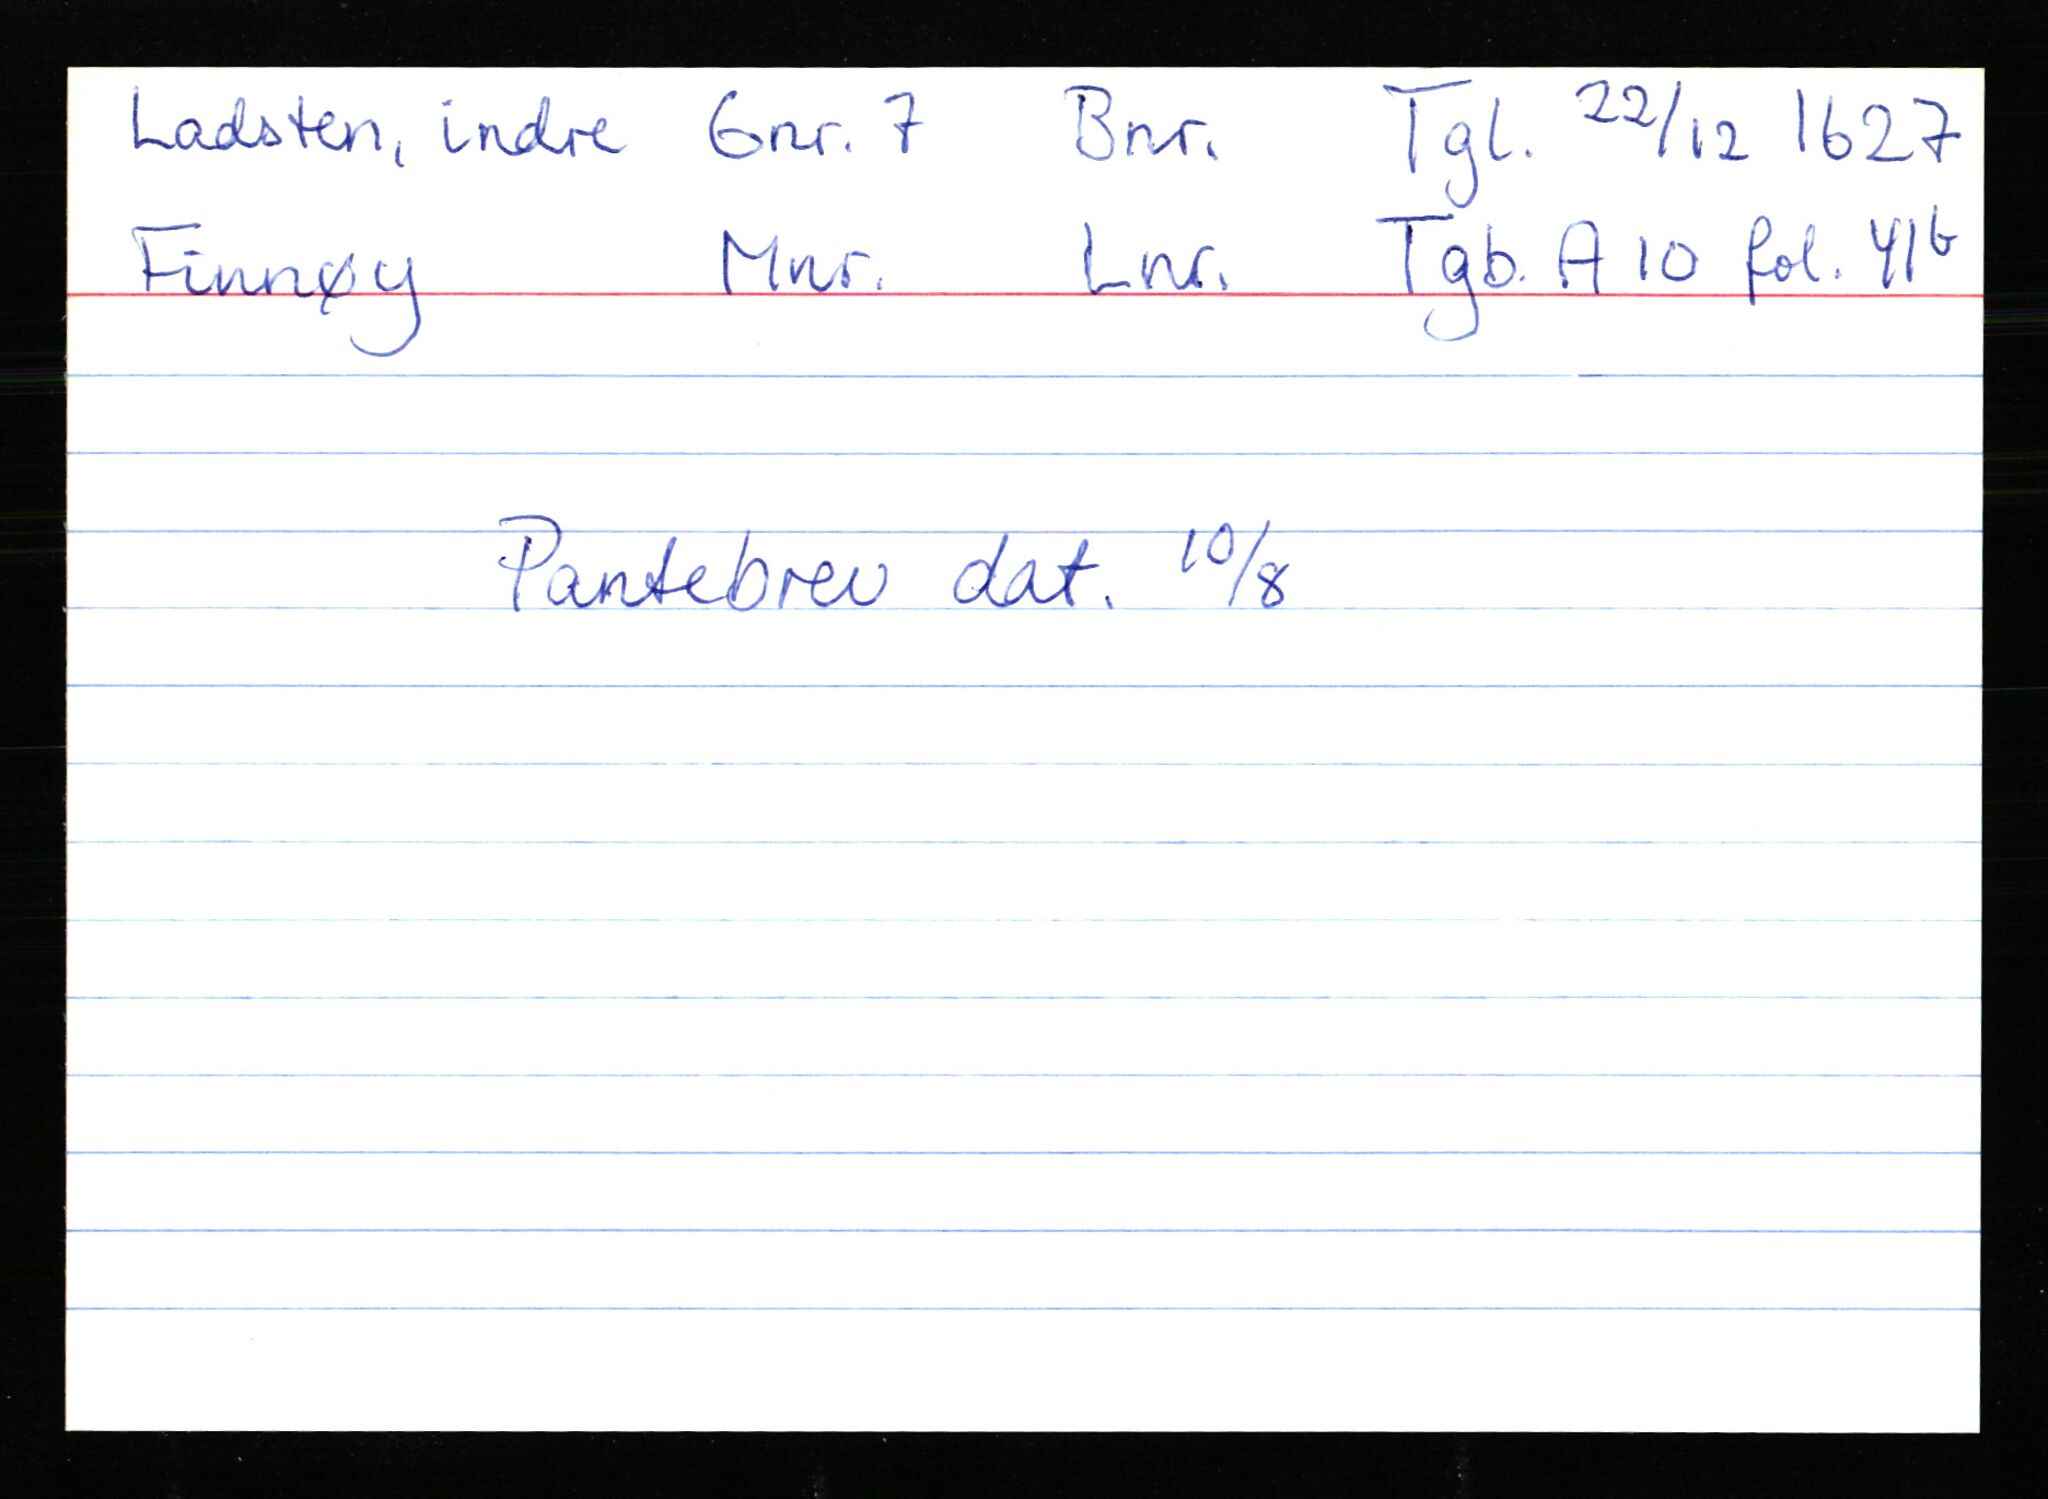 Ladsten, indre Gnr. 7 Bnr. Tgl. 22/12 1627
Finnøy Mnr. Lnr. Tgb. A 10 fol. 41b
Pantebrev dat. 10/8